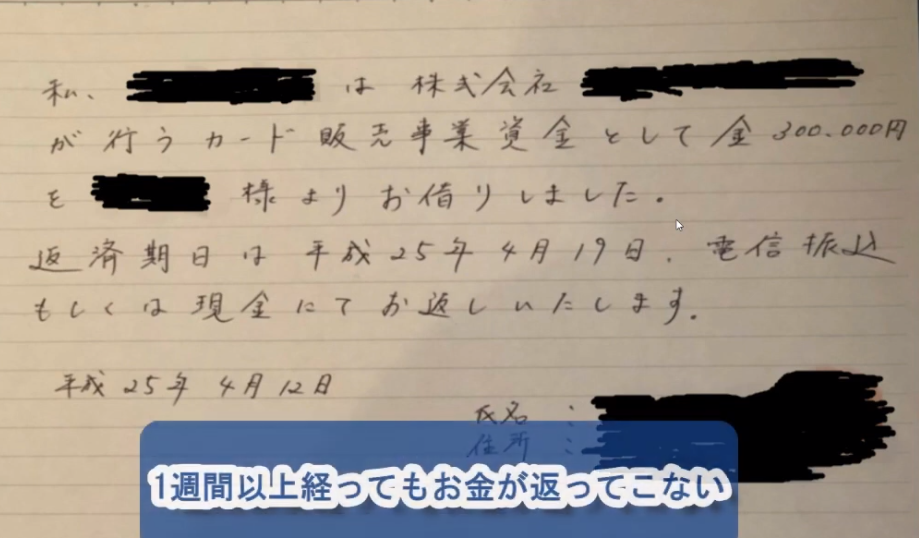 私、 は 株式会社
が行うカード販売事業資金として金 300.000円
を 様よりお借りしました。
返済期日は 平成25年4月19日. 電信振込
もしくは現金にてお返しいたします。
平成25年4月12日
氏名:
住所:
1週間以上経ってもお金が返ってこない